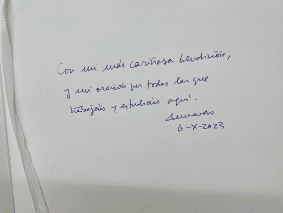 Con mi más cariñosa bendición,
y mi oración por todos los que
trabajáis y estudiáis aquí.
6-X-2023